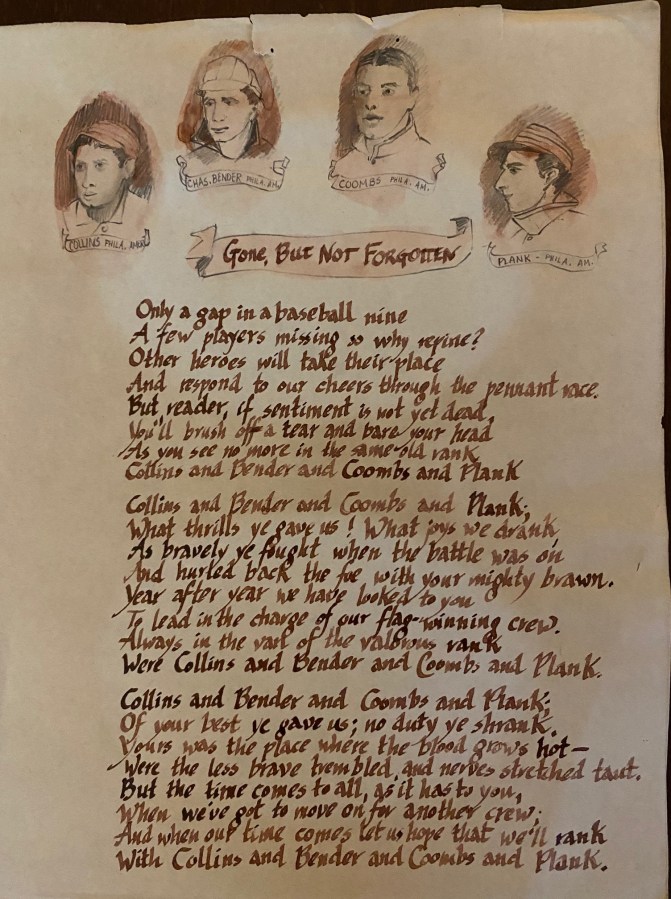 COLLINS PHILA. AMER.
CHAS. BENDER PHILA. AM.
COOMBS PHILA. AM.
PLANK - PHILA. AM.
GONE, BUT NOT FORGOTTEN
Only a gap in a baseball nine
A few players missing so why repine?
Other heroes will take their place
And respond to our cheers through the pennant race.
But, reader, if sentiment is not yet dead,
You'll brush off a tear and bare your head
As you see no more in the same old rank
Collins and Bender and Coombs and Plank
Collins and Bender and Coombs and Plank;
What thrills ye gave us! What joys we drank,
As bravely ye fought when the battle was on
And hurled back the foe with your mighty brawn.
Year after year we have looked to you
To lead in the charge of our flag-winning crew.
Always in the van of the valorous rank
Were Collins and Bender and Coombs and Plank.
Collins and Bender and Coombs and Plank;
Of your best ye gave us; no duty ye shrank.
Yours was the place where the blood grows hot—
Were the less brave trembled, and nerves stretched taut.
But the time comes to all, as it has to you,
When we've got to move on for another crew;
And when our time comes let us hope that we'll rank
With Collins and Bender and Coombs and Plank.